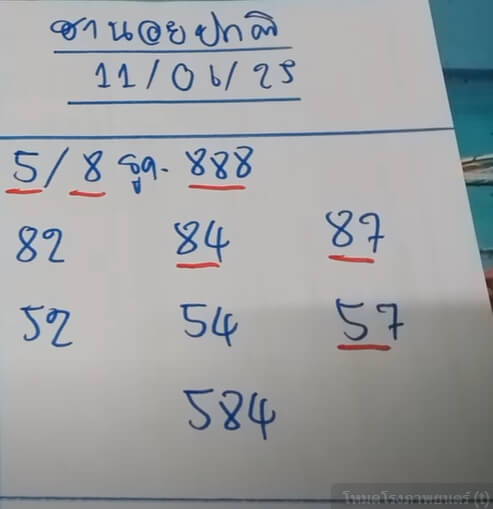 ฮานอยปกติ
11/06/25
5/8 รูด. 888
82 84 87
52 54 57
584
โหมดโรงภาพยนตร์ (t)